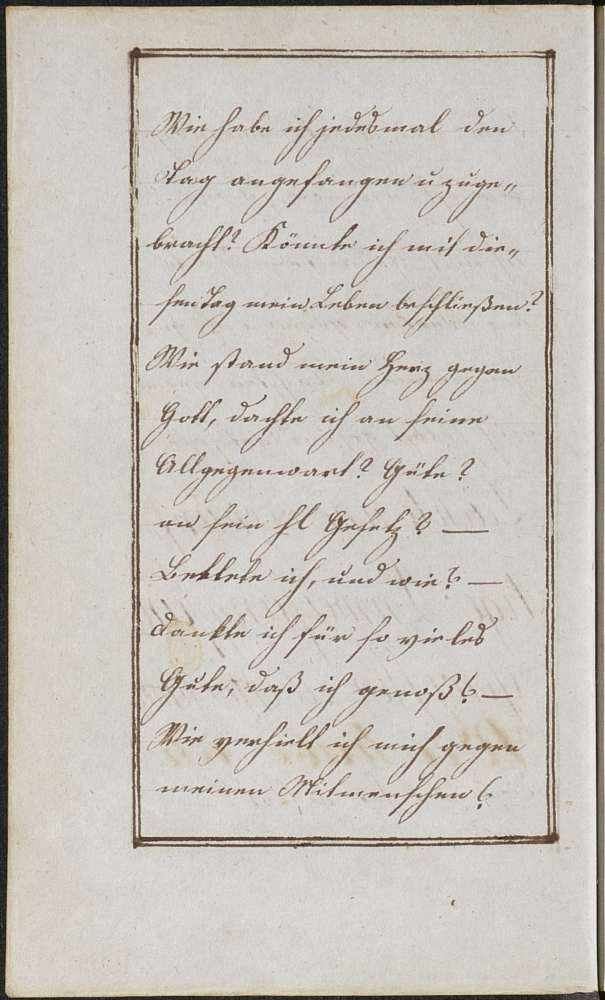 Wie habe ich jedesmal den
Tag angefangen u zuge„
bracht? Könnte ich mit die„
sen Tag mein Leben beschließen?
Wie stand mein Herz gegen
Gott, dachte ich an seine
Allgegenwart? Güte?
an sein hl Gesetz? —
Bettete ich, und wie? —
dankte ich für so vieles
Gute, daß ich genoß? —
Wie verhielt ich mich gegen
meinen Mitmenschen?